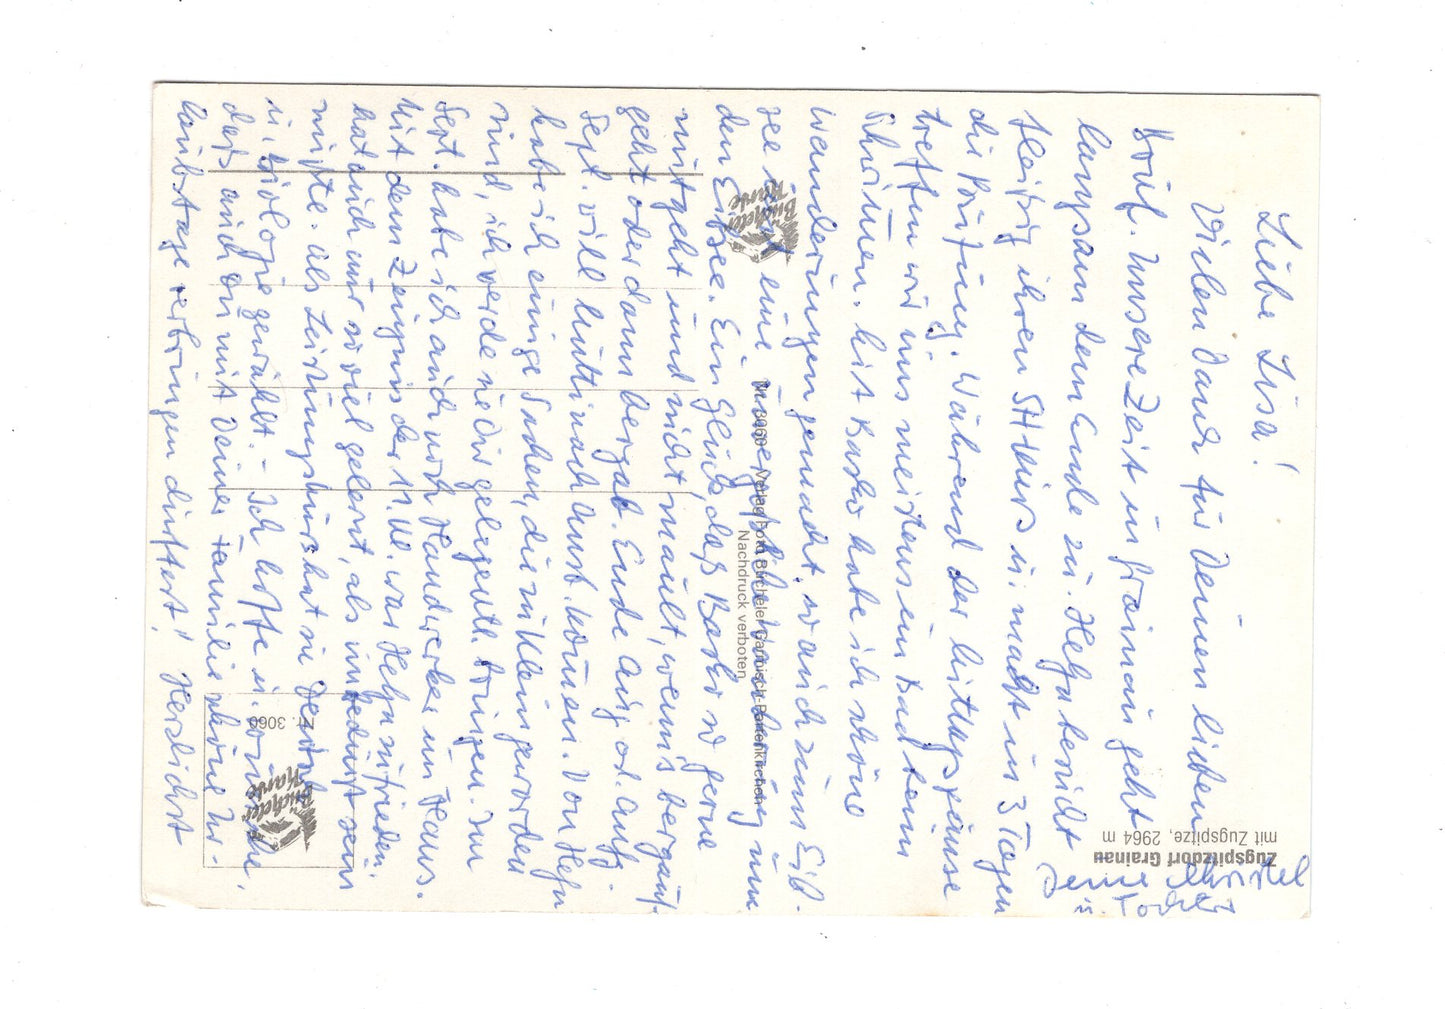 Liebe Lisa!
Vielen Dank für Deinen lieben
Brief. Unsere Zeit in Grainau geht
langsam dem Ende zu. Helga bereitet
fleißig ihren Stheirs u. macht in 3 Tagen
die Prüfung. Während der Mittagspause
treffen wir uns meistens im Bad beim
Schwimmen. Mit Basko habe ich schöne
Wanderungen gemacht, war ich zum Eib-
see eine um
den Eibsee. Ein Glück daß Basko so gerne
mitgeht und nicht mault, wenn's bergauf
geht oder dann bergab. Ende Aug. od. Anfg.
Sept. will Mutti nach kommen. Von Helga
habe ich einige Sachen, die zu klein geworden
sind, ich werde sie Dir gelegentl. bringen. Im
Sept. habe ich auch noch Handwerker im Haus.
Mit dem Zeugnis der 11. Kl. war Helga zufrieden,
hat auch nur so viel gelernt, als unbedingt sein
mußte. Als Leistungskurs hat sie Deutsch
u. Biologie gewählt. - Ich hoffe u. wünsche,
daß auch Du mit Deiner Familie schöne Ur-
laubstage verbringen dürftest! Herzlichst
Deine Christel
u. Tochter
Zugspitzdorf Grainau
mit Zugspitze, 2964 m
Bücheler
Karte
Nr. 3060 Verlag Foto Bücheler Garmisch-Partenkirchen
Nachdruck verboten
Nr. 3060
Bücheler
Karte